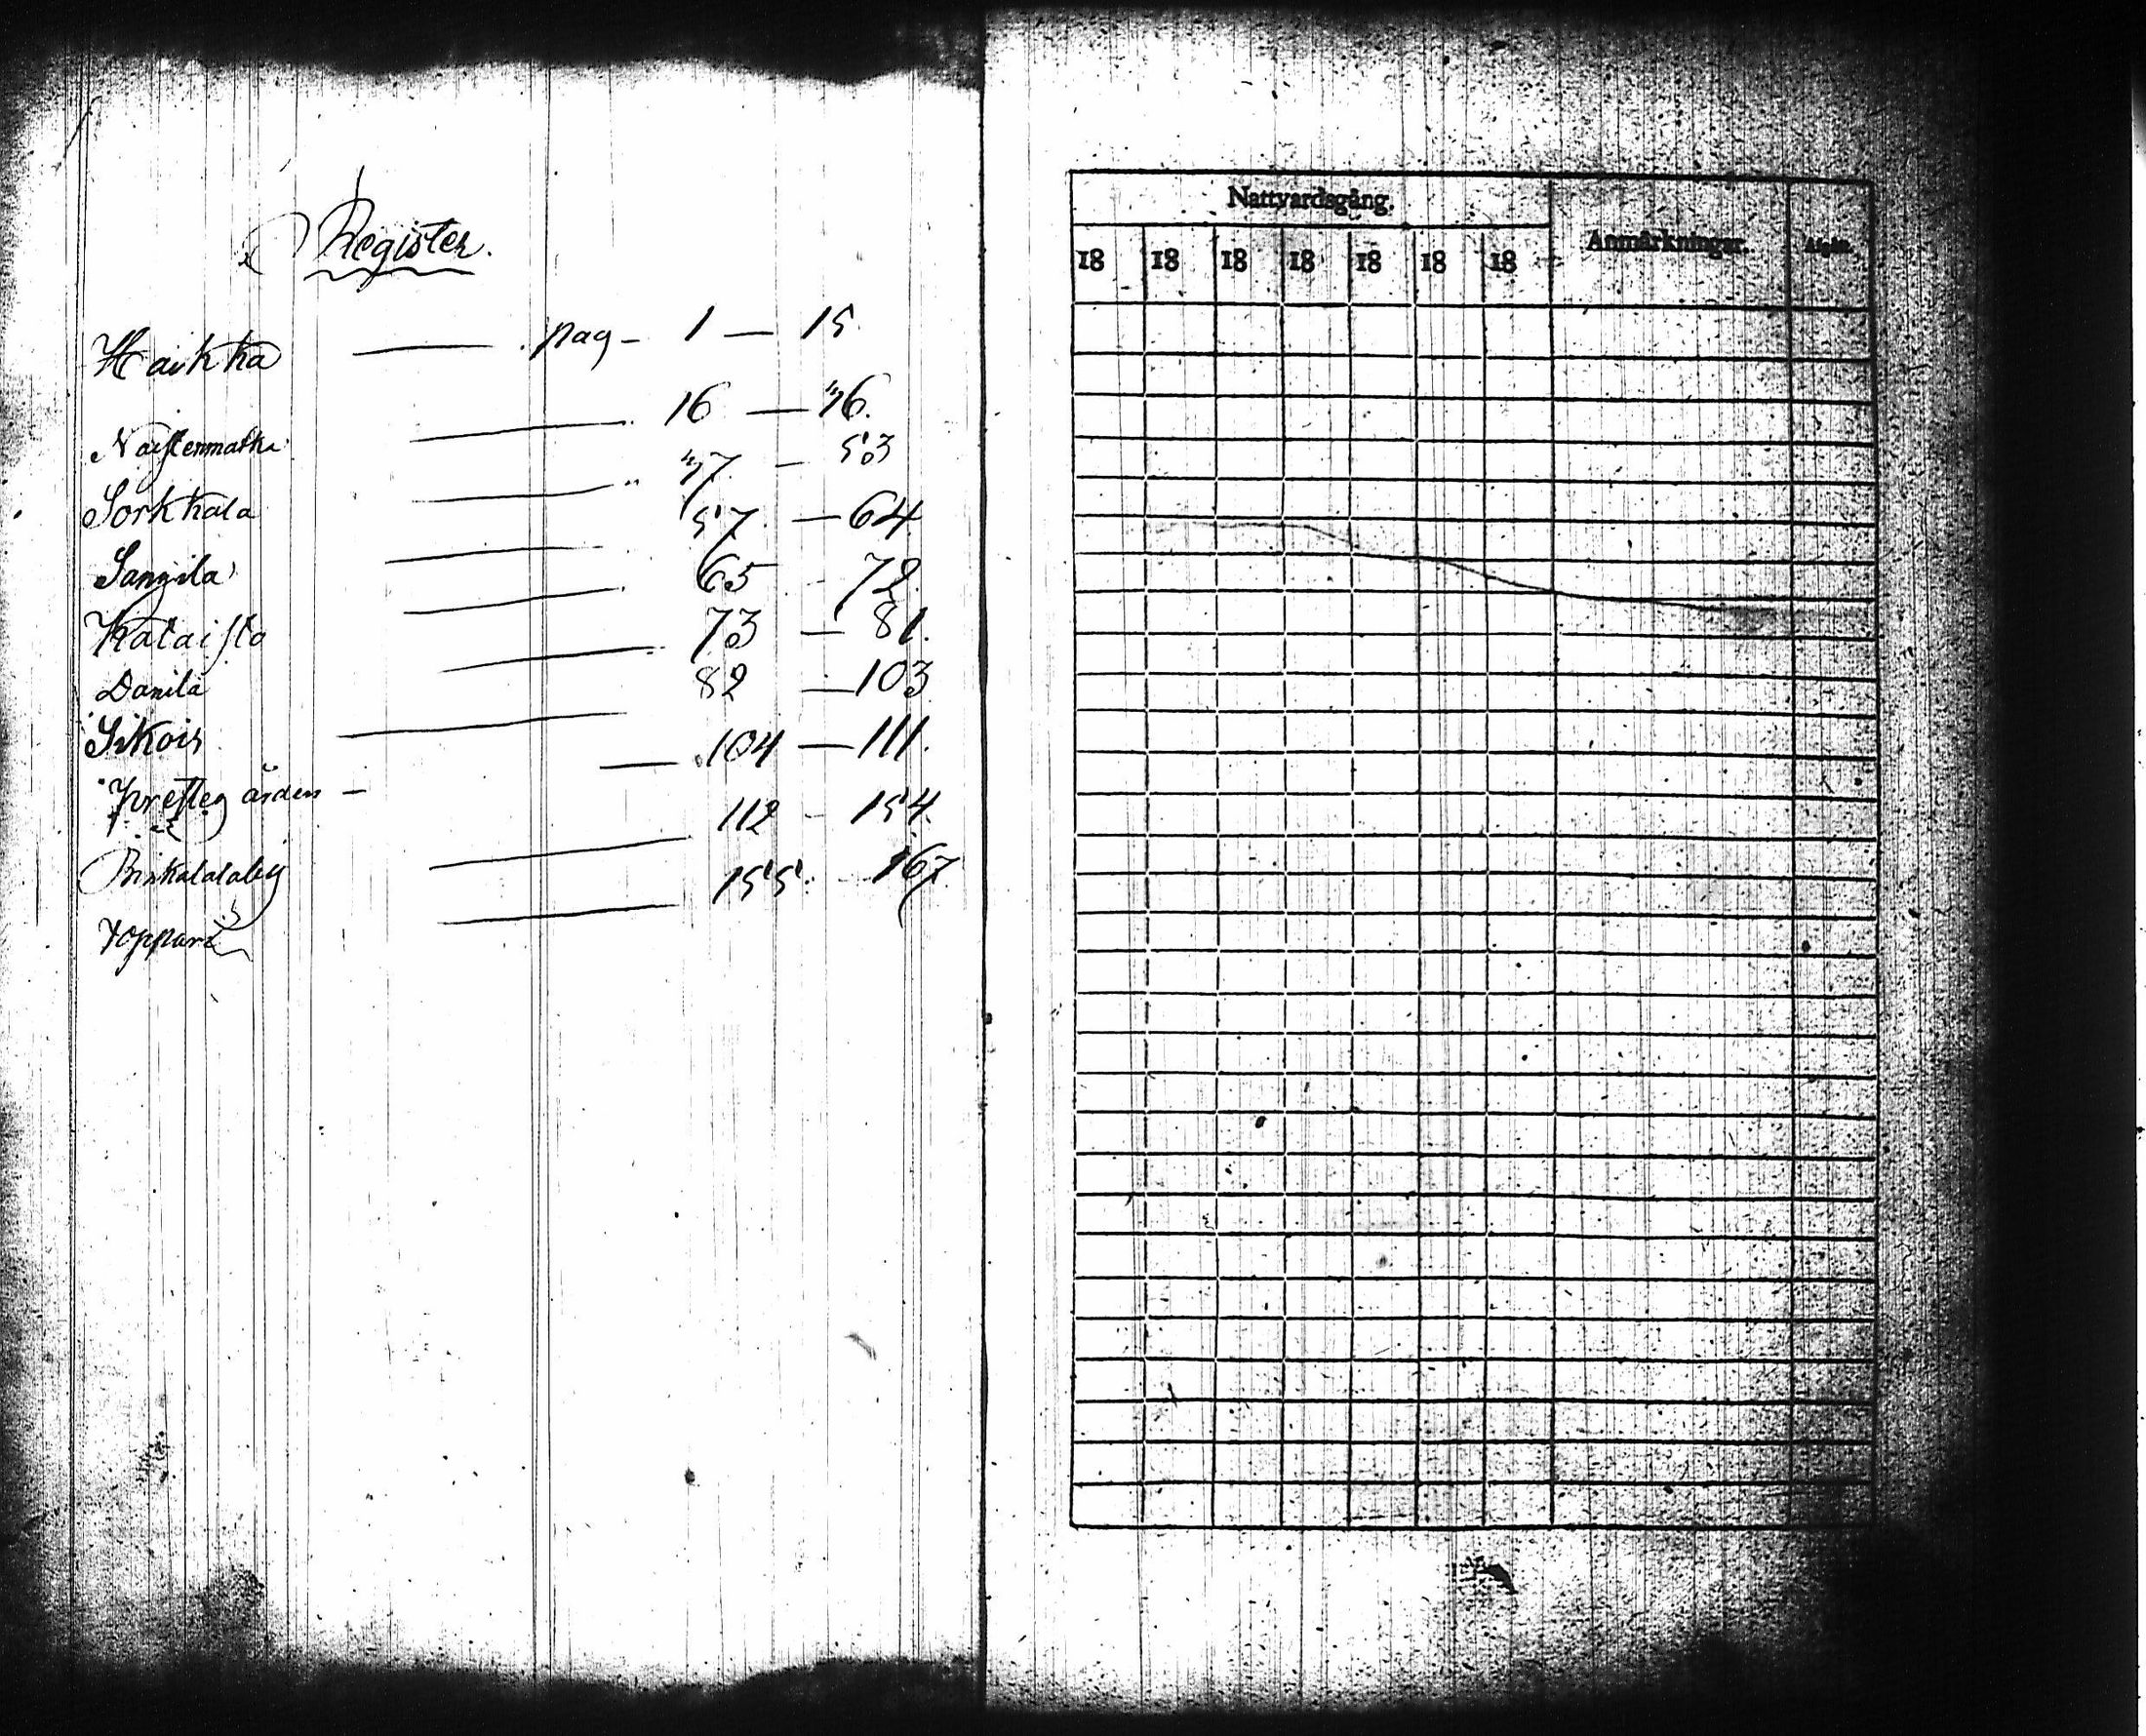 Register.
Haikka pag - 1 — 15
Naistenmatka 16 — 46.
Sorkkala 47 — 53
Sangila 57 — 64
Kataisto 65 - 72
Danila 73 — 81.
Sikois 82 — 103
Presteg ården — 104 — 111.
Birkalaby 112 - 154.
Toppari 155. - 167
Nattvardsgång. Anmärkningar.
18 18 18 18 18 18 18